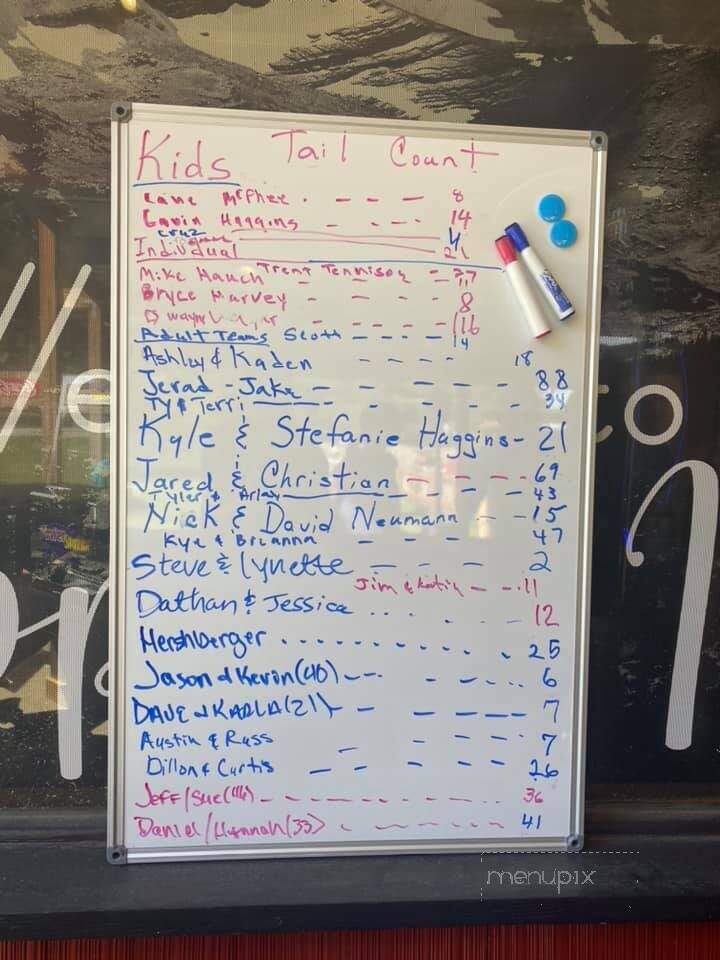 Kids Tail Count
Lane McPhee 8
Gavin Haggins 14
Cruz 4
21
Individual
Mike Hauch Trent Tennison 37
Bryce Harvey 8
Dwayne 16
Adult Teams Scott 14
Ashley & Kaden 18
Jerad - Jake 88
Ty & Terri 34
Kyle & Stefanie Haggins - 21
Jared & Christian 69
Tyler & Arlay 43
Nick & David Neumann 15
Kye & Brianna 47
Steve & Lynette 2
Jim & Katih 11
Dathan & Jessica 12
Hershberger 25
Jason & Kevin (40) 6
DAVE & KARLA (21) 7
Austin & Russ 7
Dillon & Curtis 26
Jeff/Sue (46) 36
Daniel/Hannah (33) 41
menupix